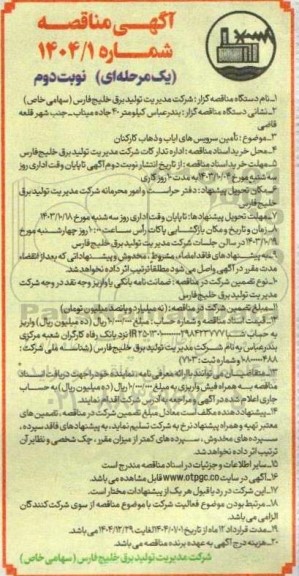 آگهی مناقصه
شماره ۱۴۰۴/۱
(یک مرحله‌ای) نوبت دوم
۱ـ نام دستگاه مناقصه گزار : شرکت مدیریت تولید برق خلیج فارس (سهامی خاص)
۲ـ نشانی دستگاه مناقصه گزار : بندرعباس کیلومتر ۲۰ جاده میناب ـ جنب شهر قلعه
قاضی
۳ـ موضوع : تأمین سرویس های ایاب و ذهاب کارکنان
۴ـ محل خرید اسناد مناقصه : اداره تدارکات شرکت مدیریت تولید برق خلیج فارس
۵ـ مهلت خرید اسناد مناقصه : از تاریخ انتشار نوبت دوم آگهی تا پایان وقت اداری روز
سه شنبه مورخ
۶ـ مکان تحویل پیشنهاد : دفتر حراست و امور محرمانه شرکت مدیریت تولید برق
خلیج فارس
۷ـ مهلت تحویل پیشنهادها : تا پایان وقت اداری روز سه شنبه مورخ ۱۴۰۳/۱۰/۱۸
۸ـ زمان و تاریخ و مکان بازگشایی پاکات رأس ساعت ۱۰:۰۰ روز چهارشنبه مورخ
۱۴۰۳/۱۰/۱۹ در سالن جلسات شرکت مدیریت تولید برق خلیج فارس
۹ـ به پیشنهادهای فاقد امضاء، مشروط، مخدوش و پیشنهاداتی که بعد از انقضاء
مدت مقرر در آگهی واصل می شود مطلقاً ترتیب اثر داده نخواهد شد.
۱۰ـ نوع تضمین شرکت در مناقصه : ضمانت نامه بانکی یا واریز وجه نقد در وجه شرکت
مدیریت تولید برق خلیج فارس
۱۱ـ مبلغ تضمین شرکت در مناقصه : (نه میلیارد و پانصد میلیون تومان)
۱۲ـ قیمت اسناد مناقصه و شماره حساب : مبلغ ریال (ده میلیون ریال) واریز
به حساب نزد بانک رفاه کارگران شعبه مرکزی
بندرعباس به نام شرکت مدیریت تولید برق خلیج فارس (شناسه ملی شرکت :
و شماره ثبت : ۷۷۰۳)
۱۳ـ متقاضیان می توانند با ارائه معرفی نامه ، نماینده خود را جهت دریافت اسناد
مناقصه به همراه فیش واریزی به مبلغ ریال (ده میلیون ریال) به حساب
جاری اعلام شده در آگهی و مراجعه به آدرس شرکت اقدام نمایند.
۱۴ـ پیشنهاد دهنده مکلف است معادل مبلغ تضمین شرکت در مناقصه ، تضمین های
معتبر تهیه و همراه پیشنهاد نرخ به شرکت تسلیم نماید، به پیشنهادهای فاقد سپرده ،
سپرده های مخدوش ، سپرده های کمتر از میزان مقرر ، چک شخصی و نظایر آن
ترتیب اثر داده نخواهد شد.
۱۵ـ سایر اطلاعات و جزئیات در اسناد مناقصه مندرج است
۱۶ـ آگهی در سایت www.otpgc.co قابل مشاهده می باشد.
۱۷ـ این شرکت در رد یا قبول هر یک از پیشنهادات مختار است.
۱۸ـ مرتبط بودن موضوع فعالیت شرکت با موضوع مناقصه از سوی شرکت کنندگان
الزامی می باشد.
۱۹ـ مدت قرارداد ۱۲ ماه از تاریخ ۱۴۰۴/۰۱/۰۱ لغایت ۱۴۰۴/۱۲/۲۹ می باشد.
۲۰ـ هزینه درج آگهی به عهده برنده مناقصه می باشد.
شرکت مدیریت تولید برق خلیج فارس (سهامی خاص)